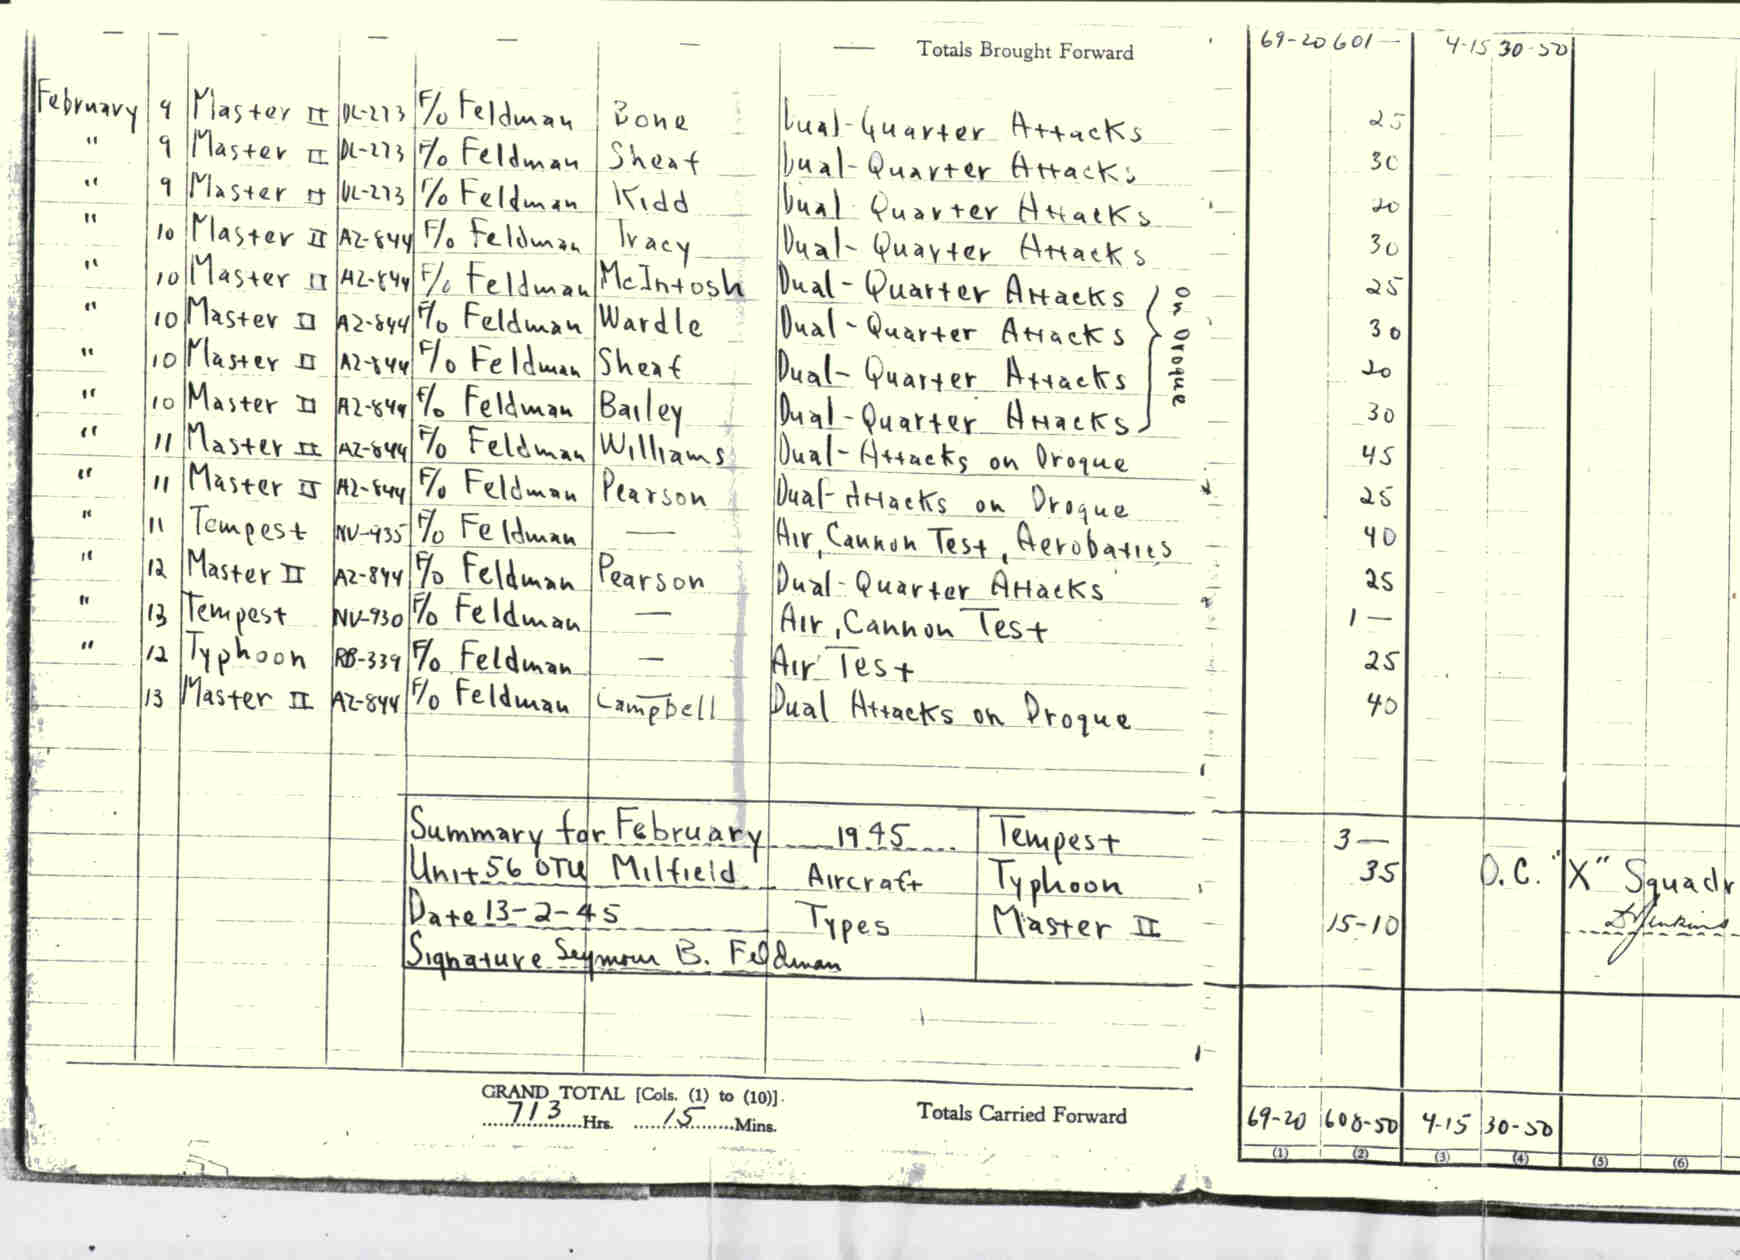 — — — — — Totals Brought Forward 69-20 601— 4-15 30-50
February 9 Master II DL-273 F/O Feldman Bone Dual-Quarter Attacks 25
" 9 Master II DL-273 F/O Feldman Sheaf Dual-Quarter Attacks 30
" 9 Master II DL-273 F/O Feldman Kidd Dual Quarter Attacks 20
" 10 Master II AZ-844 F/O Feldman Tracy Dual-Quarter Attacks 30
" 10 Master II AZ-844 F/O Feldman McIntosh Dual-Quarter Attacks 25
" 10 Master II AZ-844 F/O Feldman Wardle Dual-Quarter Attacks 30
" 10 Master II AZ-844 F/O Feldman Sheaf Dual-Quarter Attacks 20
" 10 Master II AZ-844 F/O Feldman Bailey Dual-Quarter Attacks 30
On Drogue
" 11 Master II AZ-844 F/O Feldman Williams Dual-Attacks on Drogue 45
" 11 Master II AZ-844 F/O Feldman Pearson Dual-Attacks on Drogue 25
" 11 Tempest NV-935 F/O Feldman — Air, Cannon Test, Aerobatics 40
" 12 Master II AZ-844 F/O Feldman Pearson Dual-Quarter Attacks 25
" 13 Tempest NV-930 F/O Feldman — Air, Cannon Test 1—
" 12 Typhoon RB-339 F/O Feldman — Air Test 25
13 Master II AZ-844 F/O Feldman Campbell Dual Attacks on Drogue 40
Summary for February 1945 Tempest 3—
Unit 56 OTU Milfield Aircraft Typhoon 35 O.C. "X" Squadr
Date 13-2-45 Types Master II 15-10 Jenkins
Signature Seymour B. Feldman
GRAND TOTAL [Cols. (1) to (10)].
713 Hrs. 15 Mins. Totals Carried Forward 69-20 608-50 4-15 30-50
(1) (2) (3) (4) (5) (6)